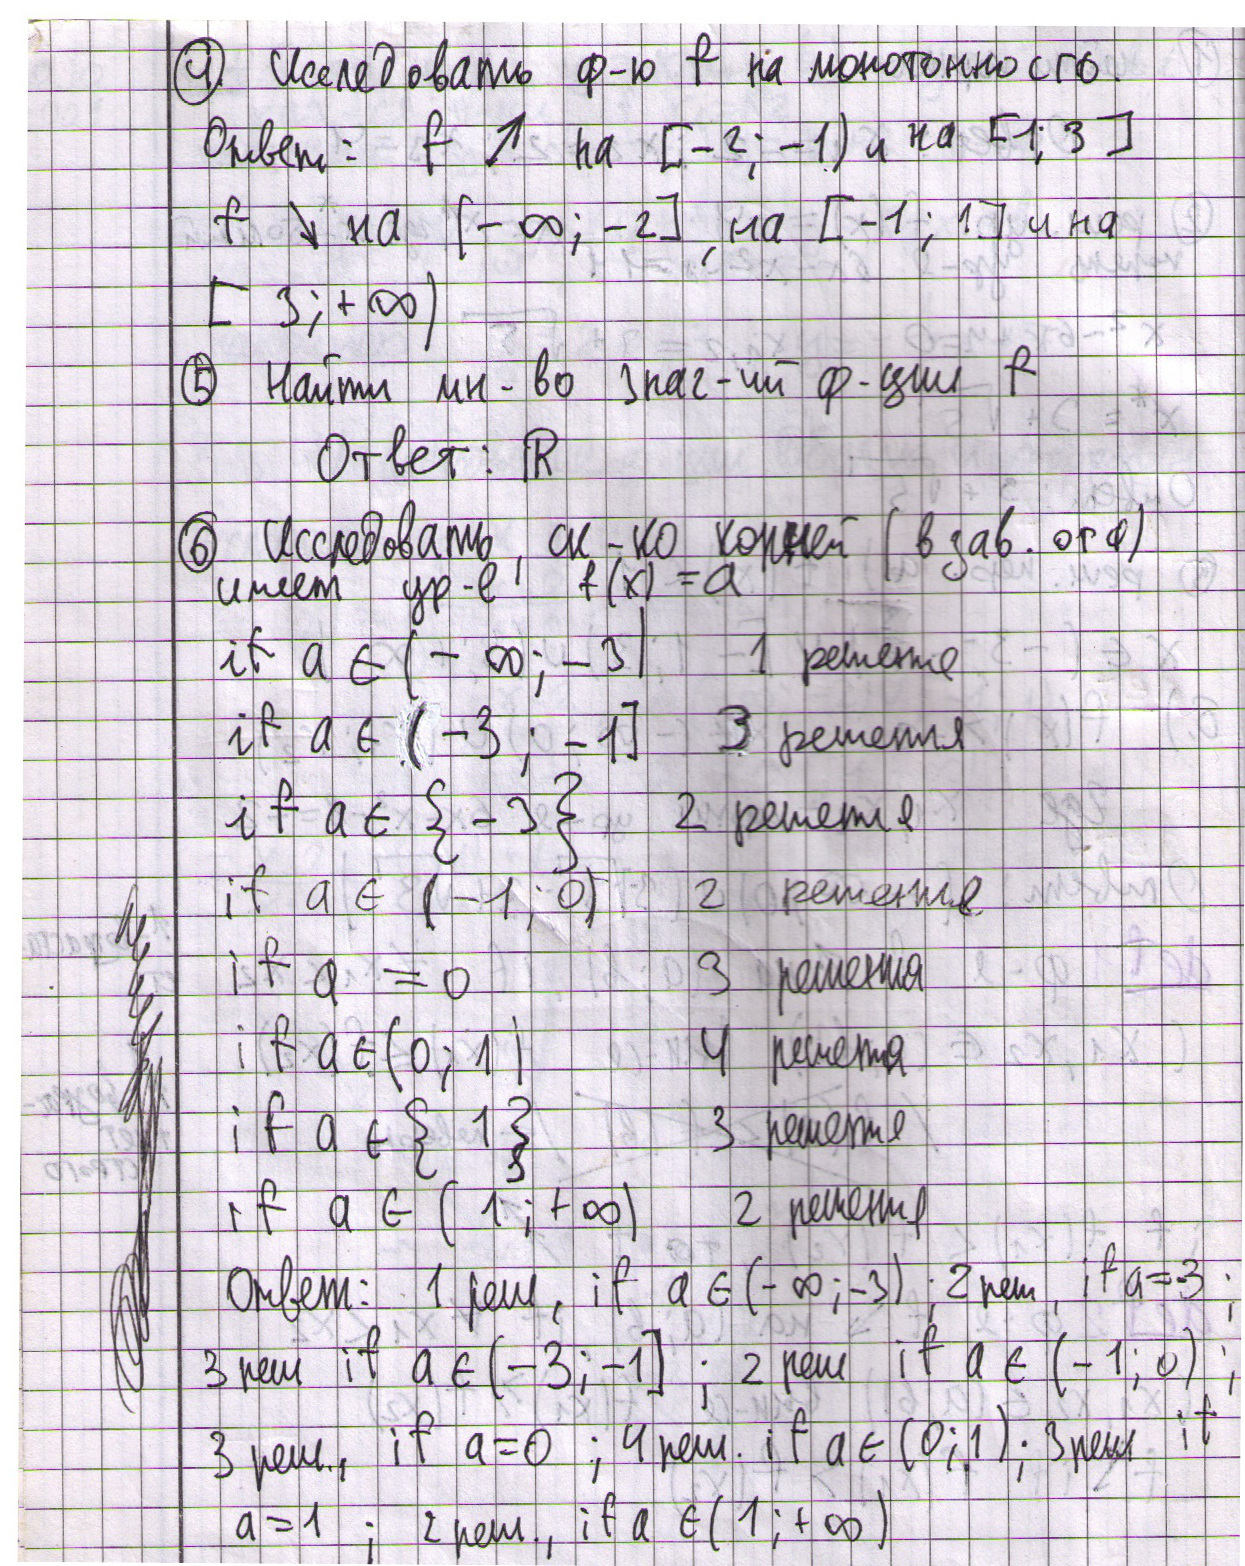 ④ Исследовать ф-ю f на монотонность.
Ответ: f ↗ на [-2; -1) и на [1; 3]
f ↘ на [-∞; -2], на [-1; 1] и на
[3; +∞)
⑤ Найти мн-во знач-ий ф-ции f
Ответ: ℝ
⑥ Исследовать, ск-ко корней (в зав. от a)
имеет ур-е f(x) = a
if a ∈ (-∞; -3) 1 решение
if a ∈ (-3; -1] 3 решения
if a ∈ {-3} 2 решения
if a ∈ (-1; 0) 2 решения
if a = 0 3 решения
if a ∈ (0; 1) 4 решения
if a ∈ {1} 3 решения
if a ∈ (1; +∞) 2 решения
Ответ: 1 реш., if a ∈ (-∞; -3); 2 реш, if a = 3;
3 реш if a ∈ (-3; -1]; 2 реш if a ∈ (-1; 0);
3 реш., if a = 0; 4 реш. if a ∈ (0; 1); 3 реш if
a = 1; 2 реш., if a ∈ (1; +∞)